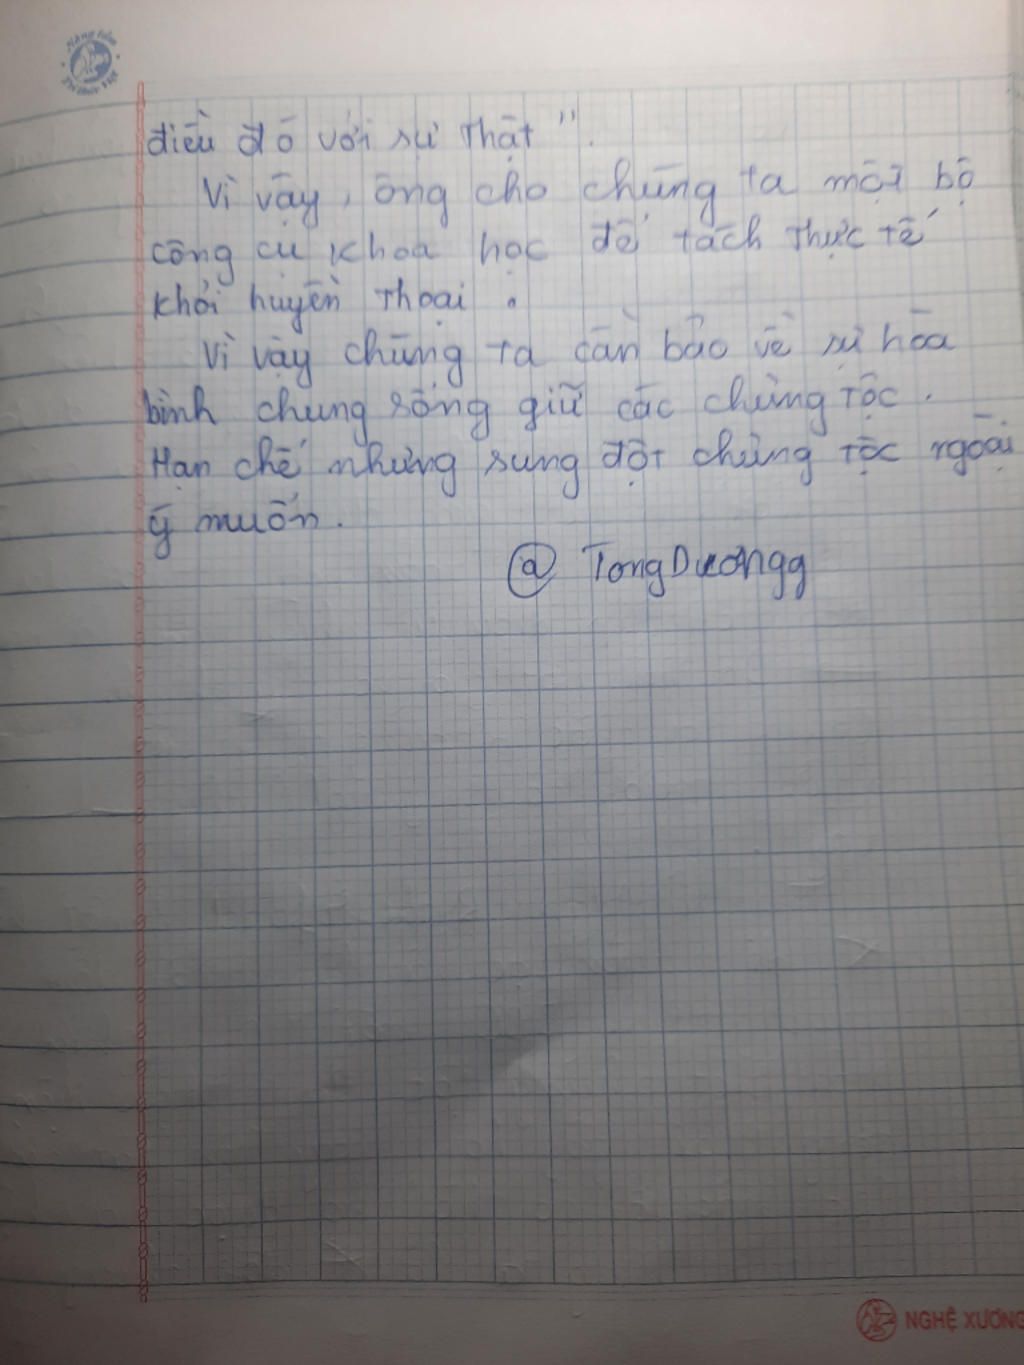 Nâng tầm
Tri thức Việt
điều đó với sự thật".
Vì vậy, ông cho chúng ta một bộ
công cụ khoa học để tách thực tế
khỏi huyền thoại.
Vì vậy chúng ta cần bảo vệ sự hòa
bình chung sống giữ các chủng tộc.
Hạn chế những sung đột chủng tộc ngoài
ý muốn.
@ TongDươngg
NGHỆ XƯƠNG